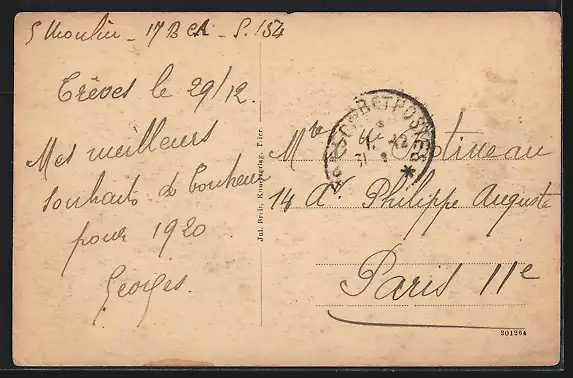 S Moulin - 17 B CA - S. 154
Trêves le 29/12.
Mes meilleurs
souhaits de bonheur
pour 1920
Georges.
Jul. Breit, Kunstverlag, Trier.
POSTES
31
12
Mme
14 A. Philippe Auguste
Paris 11e
201264